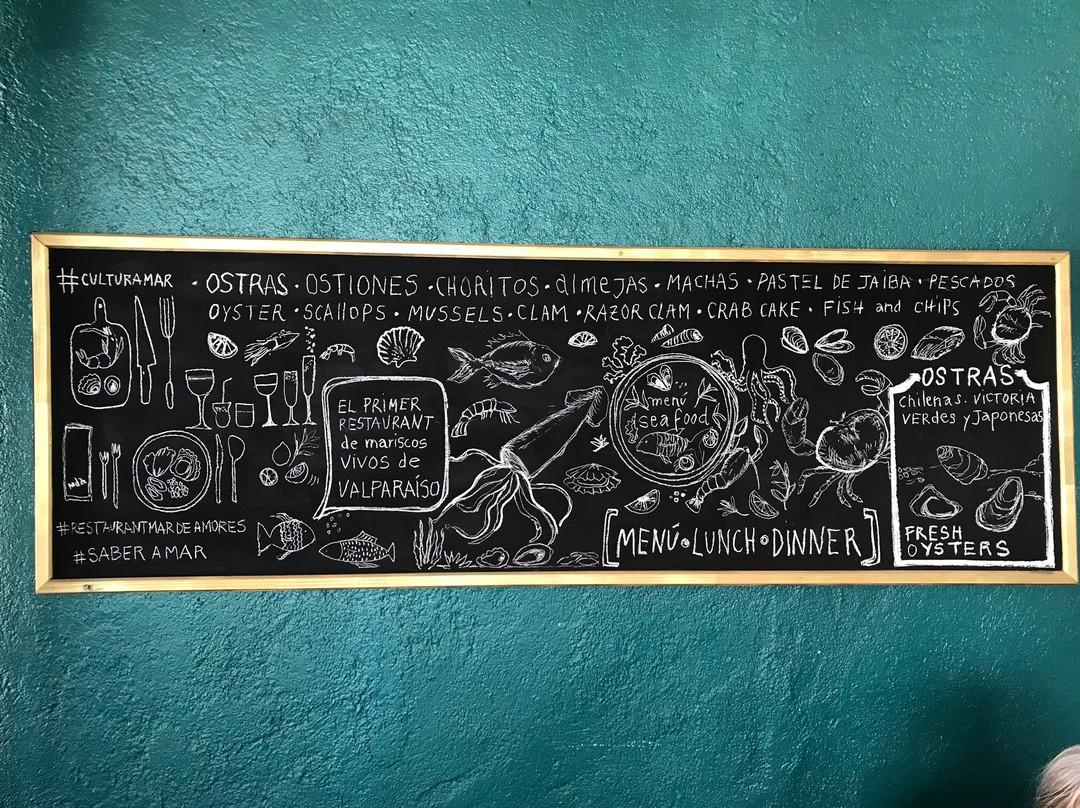 #CULTURAMAR
· OSTRAS · OSTIONES · CHORITOS · almejas · MACHAS · PASTEL DE JAIBA · PESCADOS
OYSTER · SCAllOPS · MUSSELS · CLAM · RAZOR CLAM · CRAB CAKE · FISH and CHIPS
EL PRIMER
RESTAURANT
de mariscos
VIVOS de
VALPARAÍSO
menú
sea food
#RESTAURANTMARDEAMORES
#SABER AMAR
[MENÚ·LUNCH·DINNER]
OSTRAS
chilenas. VICTORIA
VERdes y Japonesas
FRESH
OYSTERS